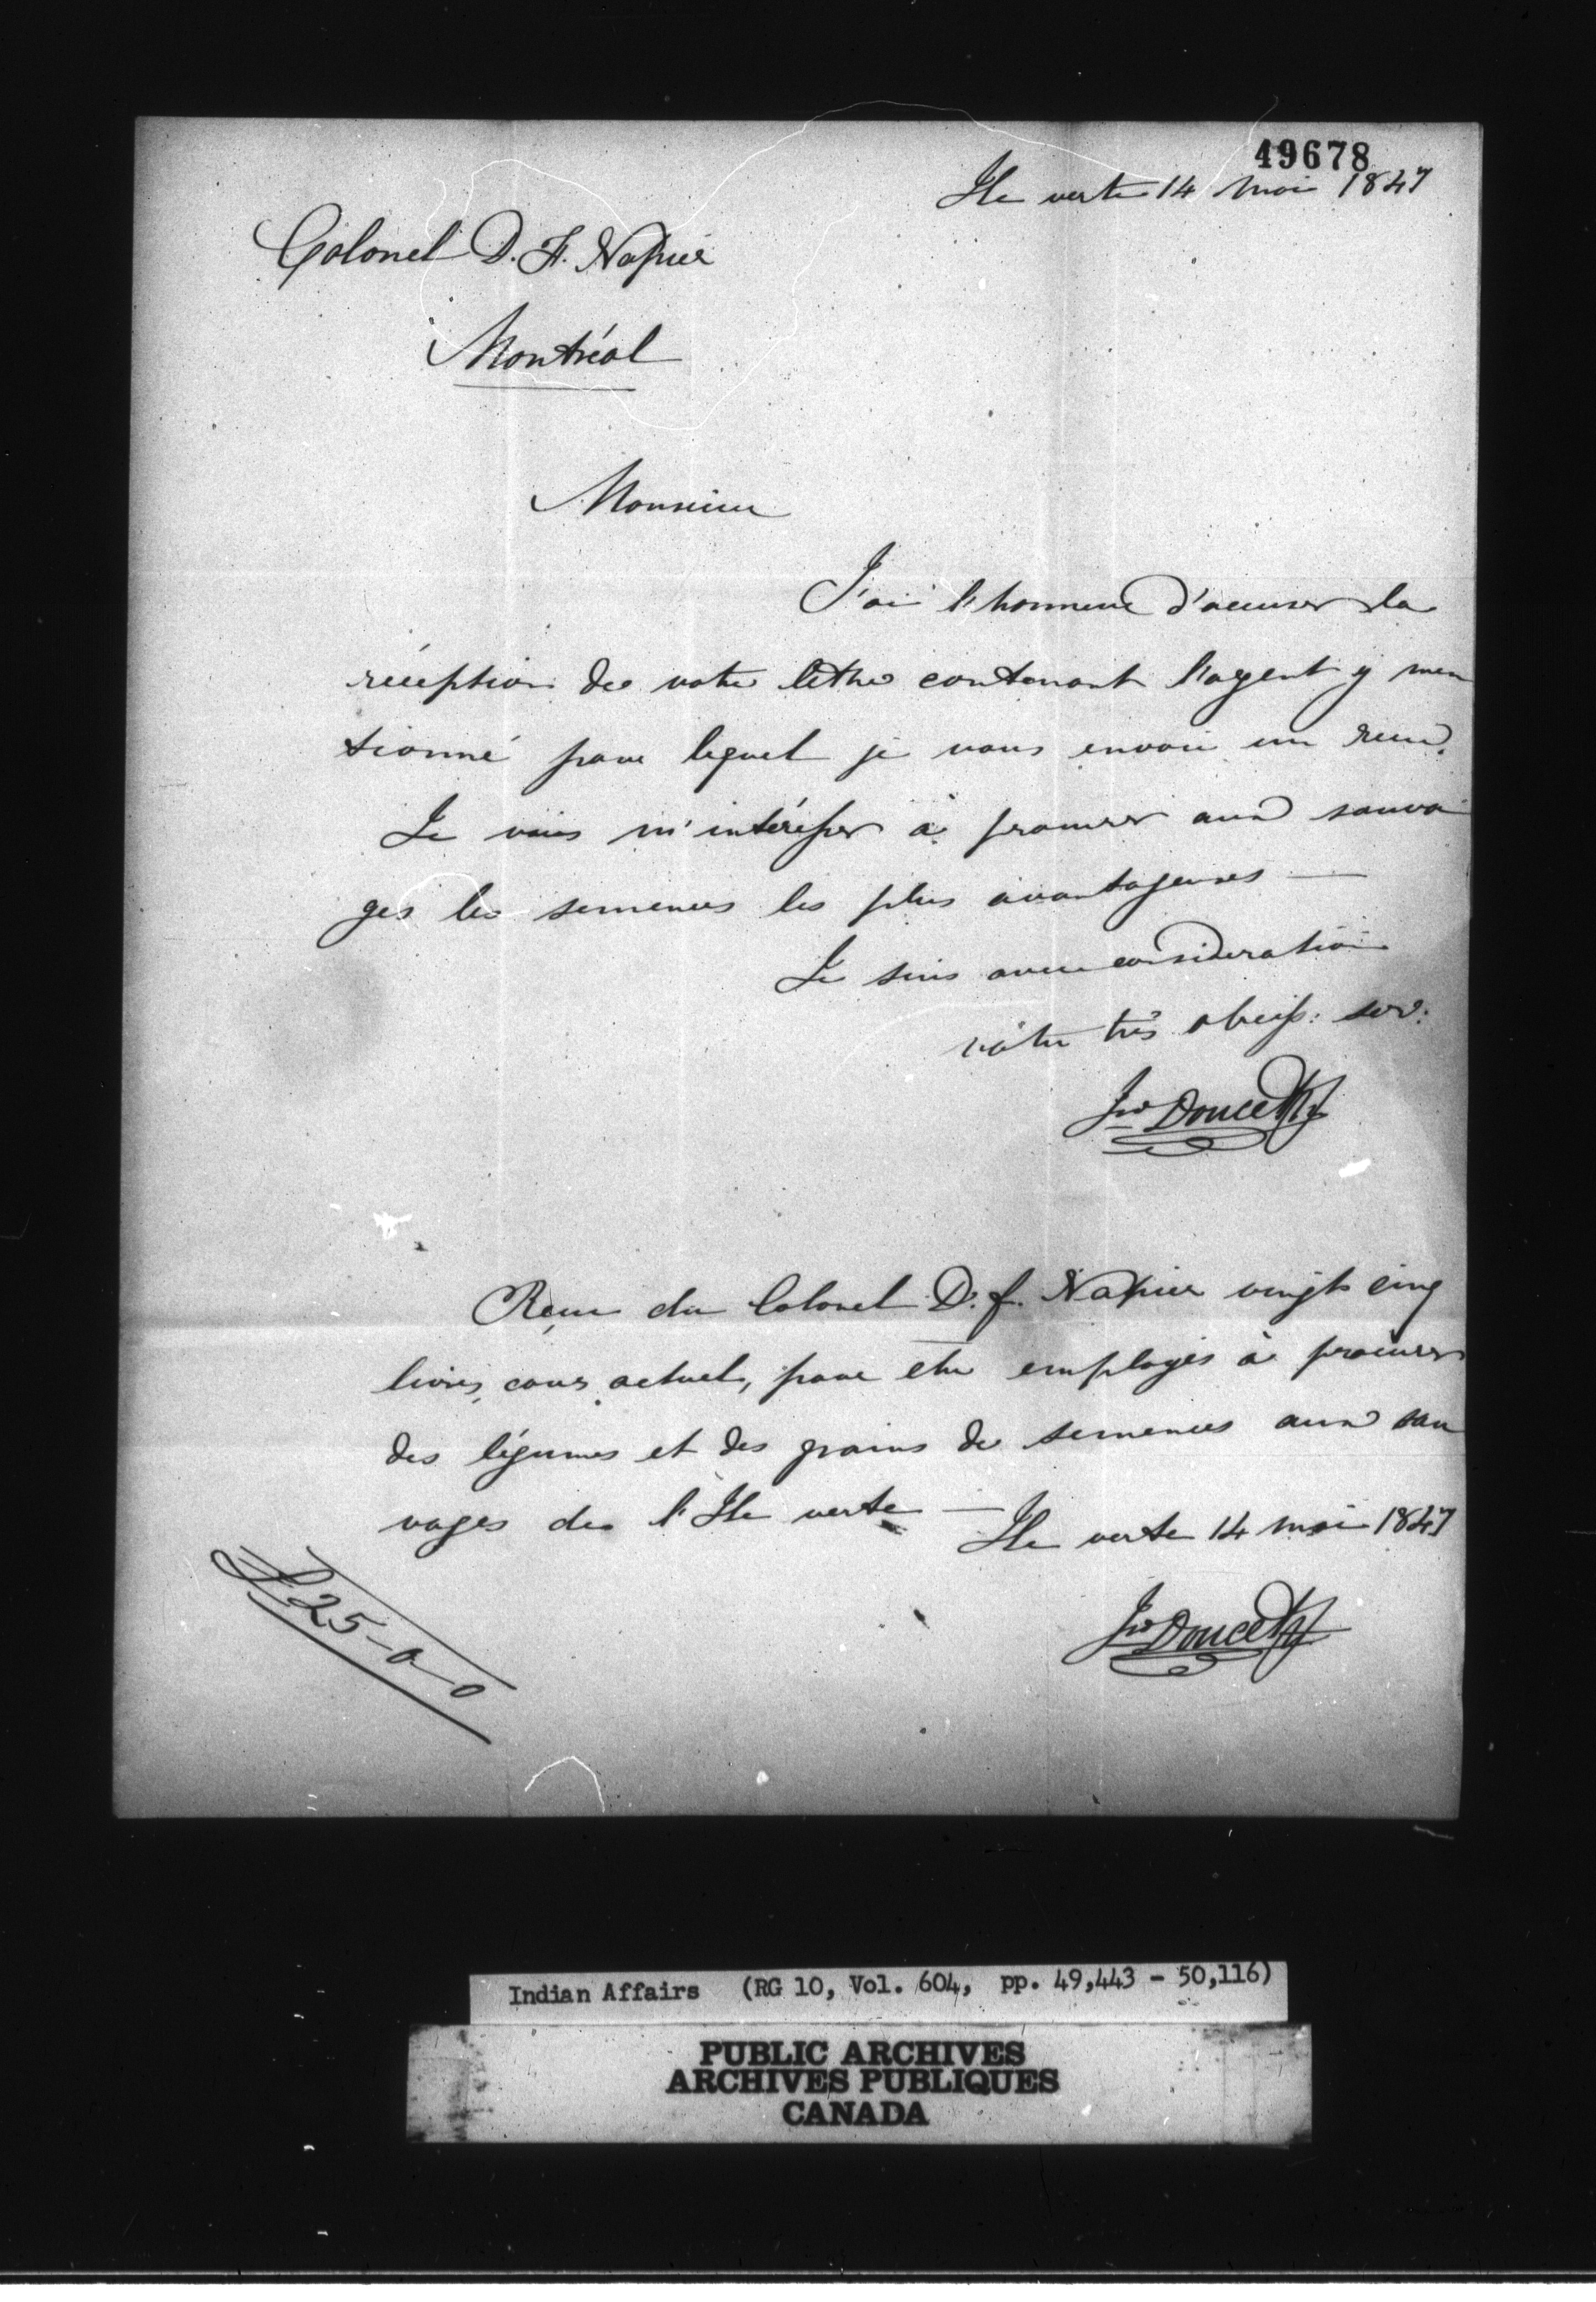 49678
Ile verte 14 mai 1847
Colonel D. F. Napier
Montréal
Monsieur
J'ai l'honneur d'accuser la
réception de votre lettre contenant l'argent y men
tionné pour lequel je vous envoie un reçu.
Je vais m'intéresser à procurer aux sauva
ges les semences les plus avantageuses —
Je suis avec consideration
vôtre très obeiss: serv:
Jos Doucet Ptre
Reçu du Colonel D. f. Napier vingt cinq
livres, cour actuel, pour etre employés à procurer
des légumes et des grains de semences aux sau
vages de l'Ile verte —
Ile verte 14 mai 1847
£25-0-0
Jos Doucet Ptre
Indian Affairs (RG 10, Vol. 604, pp. 49,443 - 50,116)
PUBLIC ARCHIVES
ARCHIVES PUBLIQUES
CANADA